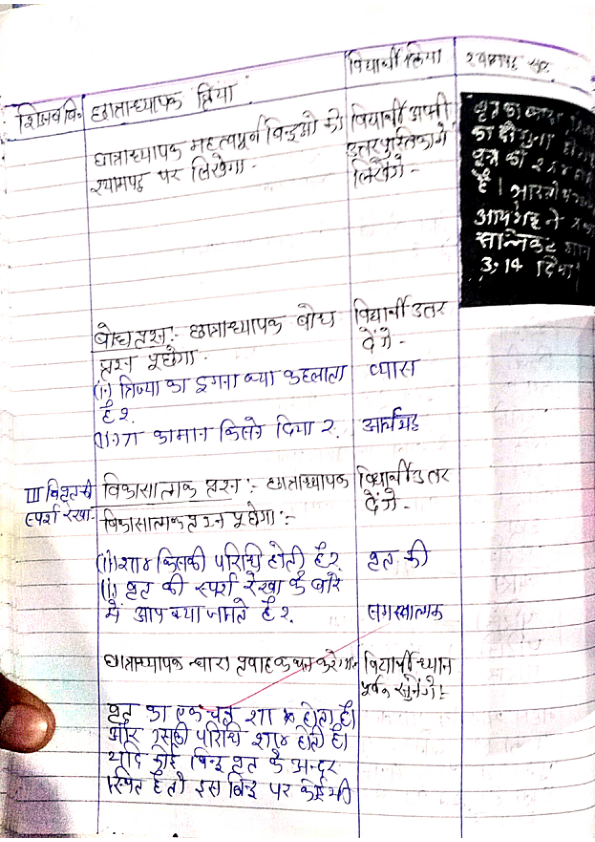 शिक्षण बि. छात्राध्यापक क्रिया विद्यार्थी क्रिया श्यामपट्ट
छात्राध्यापक महत्वपूर्ण बिन्दुओ को
श्यामपट्ट पर लिखेगा -
विद्यार्थी अपनी
उत्तरपुस्तिका में
लिखेंगे -
का दो गुना
वृत्त की
है।
आर्यभट्ट ने
सन्निकट मान
3.14 दिया।
बोध प्रश्न :- छात्राध्यापक बोध
प्रश्न पूछेगा -
विद्यार्थी उत्तर
देंगे -
(i) त्रिज्या का दुगना क्या कहलाता
है ?
व्यास
(ii) π का मान किसने दिया ?
आर्यभट्ट
III वृत्त की
स्पर्श रेखा -
विकासात्मक प्रश्न :- छात्राध्यापक
विकासात्मक प्रश्न पूछेगा :-
विद्यार्थी उत्तर
देंगे -
(i) शाळ किसकी परिधि होती है ?
वृत की
(ii) वृत की स्पर्श रेखा के बारे
में आप क्या जानते है ?
समस्यात्मक
छात्राध्यापक द्वारा प्रवाह कथन करेगा -
विद्यार्थी ध्यान
पूर्वक सुनेंगे :-
वृत का एक होता है।
और इसकी परिधि होती है।
यदि कोई बिन्दु वृत के अन्दर
स्थित हो तो इस बिन्दु पर कोई भी